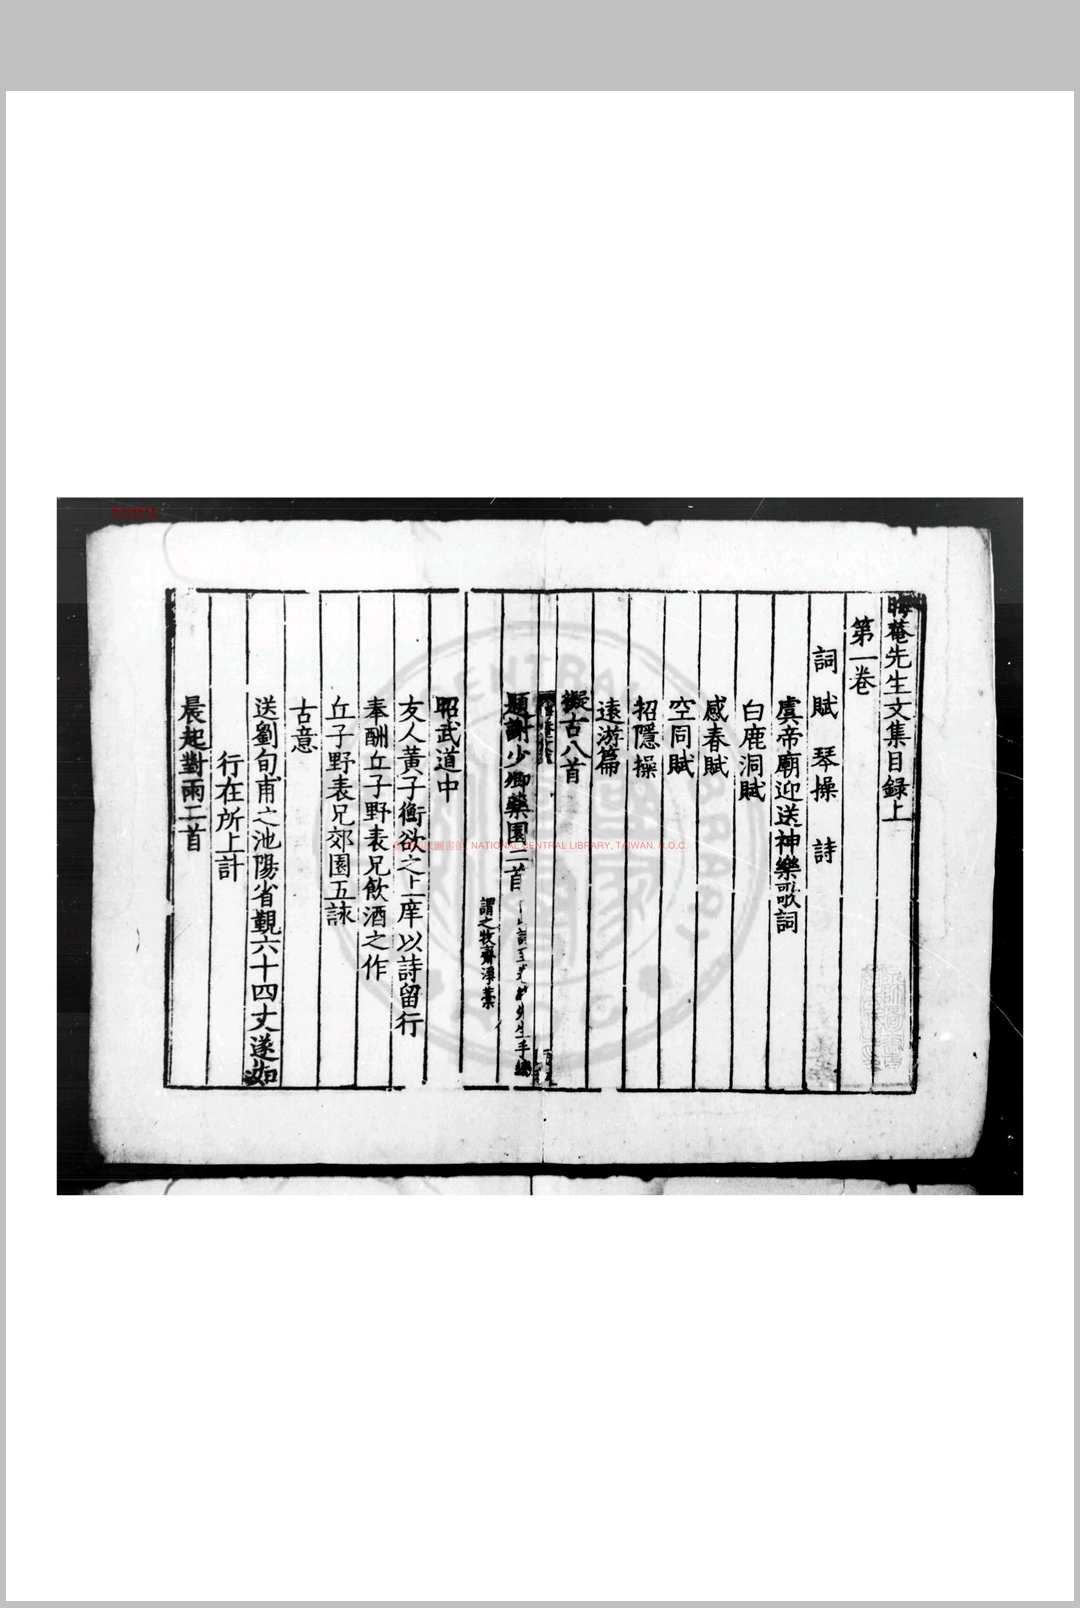 晦菴先生文集目録上
第一卷
詞賦 琴操 詩
虞帝廟迎送神樂歌詞
白鹿洞賦
感春賦
空同賦
招隱操
遠游篇
擬古八首
題謝少卿藥園二首
先生手編
謂之牧齋淨藁
昭武道中
友人黃子衡欲之上庠以詩留行
奉酬丘子野表兄飲酒之作
丘子野表兄郊園五詠
古意
送劉旬甫之池陽省覲六十四丈遂如
行在所上計
晨起對雨二首
NATIONAL CENTRAL LIBRARY, TAIWAN, R.O.C.